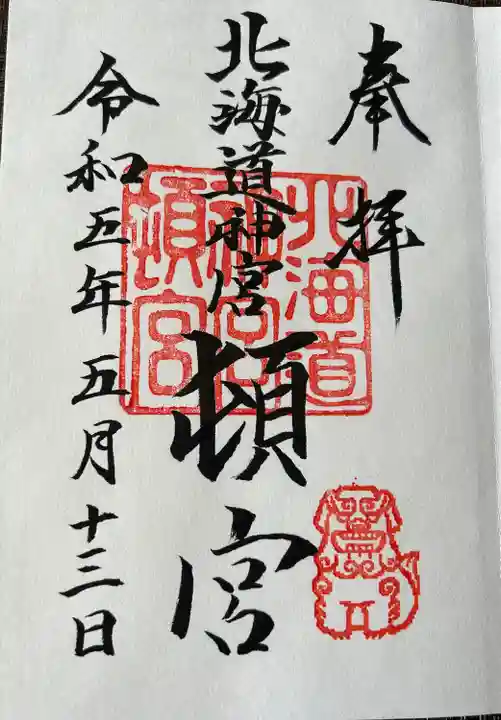 奉拝
北海道神宮
頓宮
令和五年五月十三日
北海道
神宮
頓宮